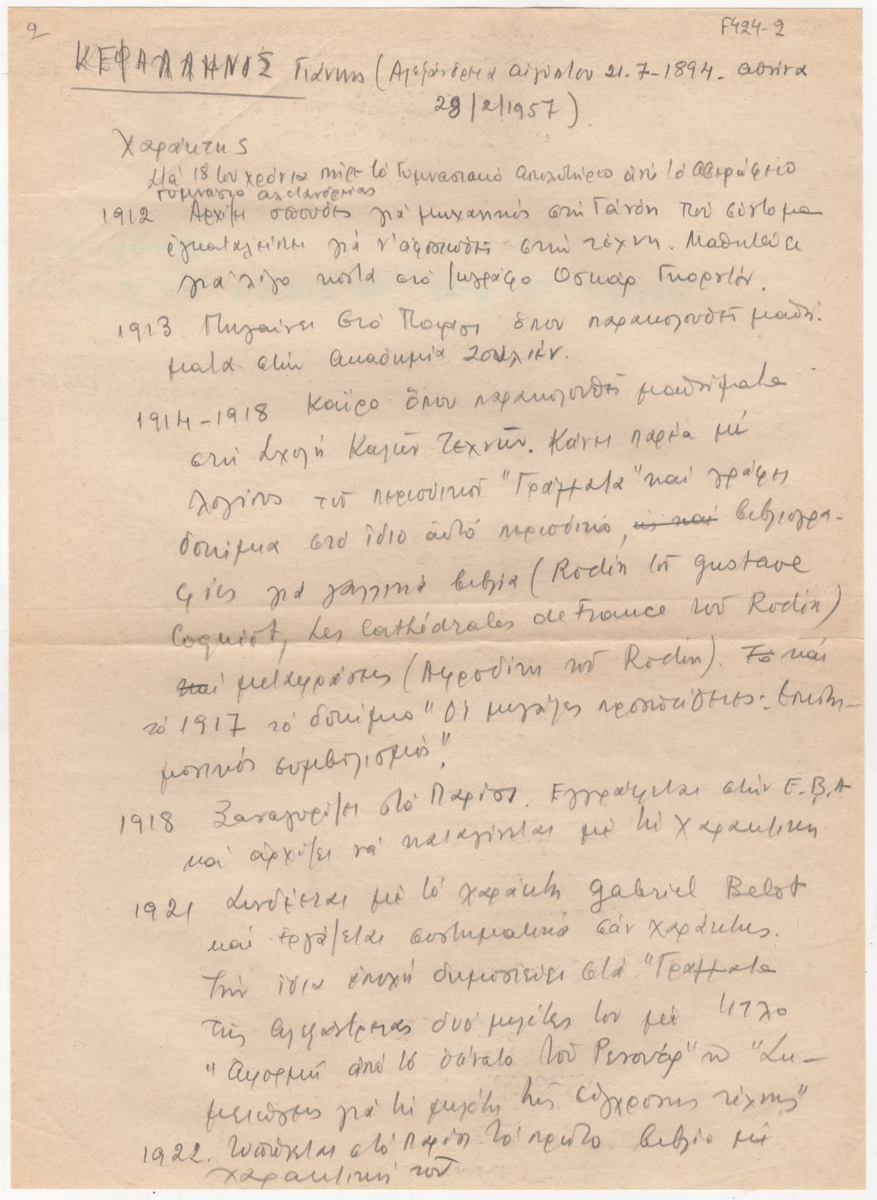 2
F424-2
ΚΕΦΑΛΛΗΝΟΣ Γιάννης (Αλεξάνδρεια Αιγύπτου 21.7-1894. Αθήνα
28/2/1957).
Χαράκτης
Στά 18 του χρόνια πήρε τό Γυμνασιακό απολυτήριο από τό Αβερώφειο
Γυμνάσιο Αλεξανδρείας
1912 Αρχίζει σπουδές γιά μηχανικός στή Γάνδη πού σύντομα
εγκαταλείπει γιά ν' αφοσιωθεί στήν τέχνη. Μαθητεύει
γιά λίγο κοντά στό ζωγράφο Οσκάρ
1913 Πηγαίνει στό Παρίσι όπου παρακολουθεί μαθή-
ματα στήν Ακαδημία Ζουλιάν.
1914-1918 Κάϊρο όπου παρακολουθεί μαθήματα
στή Σχολή Καλών Τεχνών. Κάνει παρέα μέ
λογίους τού περιοδικού "Γράμματα" καί γράφει
δοκίμια στό ίδιο αυτό περιοδικό, βιβλιογρα-
φίες γιά γαλλικά βιβλία (Rodin τού gustave
Coquiot, Les Cathédrales de France τού Rodin)
καί μεταφράσεις (Αφροδίτη τού Rodin). Το καί
τό 1917 τό δοκίμιο "Οι μεγάλες προϋποθέσεις: Επιστη-
μονικός συμβολισμός".
1918 Ξαναγυρίζει στό Παρίσι. Εγγράφεται στήν E.B.A
καί αρχίζει νά καταγίνεται μέ τή χαρακτική
1921 Συνδέεται μέ τό χαράκτη Gabriel Belot
καί εργάζεται συστηματικά σάν χαράκτης.
Τήν ίδια εποχή δημοσιεύει στά "Γράμματα
της Αλεξάνδρειας δυό μελέτες του μέ τίτλο
"Αφορμή από τό θάνατο τού Ρενουάρ" "Ση-
μειώσεις γιά τή μελέτη τής σύγχρονης τέχνης"
1922. Τυπώνεται στό Παρίσι τό πρώτο βιβλίο μέ
χαρακτική του